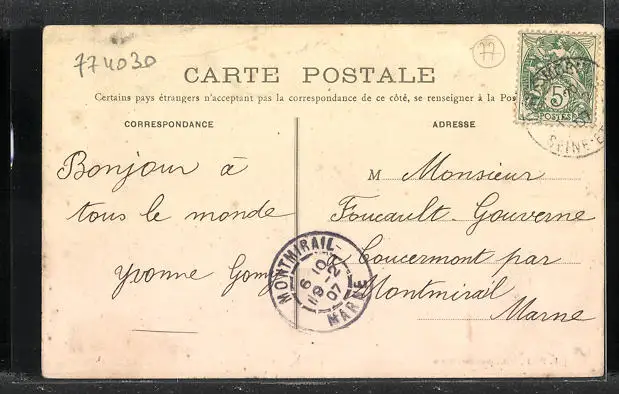 774030
77
CARTE POSTALE
Certains pays étrangers n'acceptant pas la correspondance de ce côté, se renseigner à la Pos
CORRESPONDANCE
ADRESSE
5
POSTES
SEINE-E
Bonjour à
tous le monde
Yvonne
M Monsieur
Foucault-Gouverne
à Coucermont par
Montmirail
Marne
MONTMIRAIL
MARNE